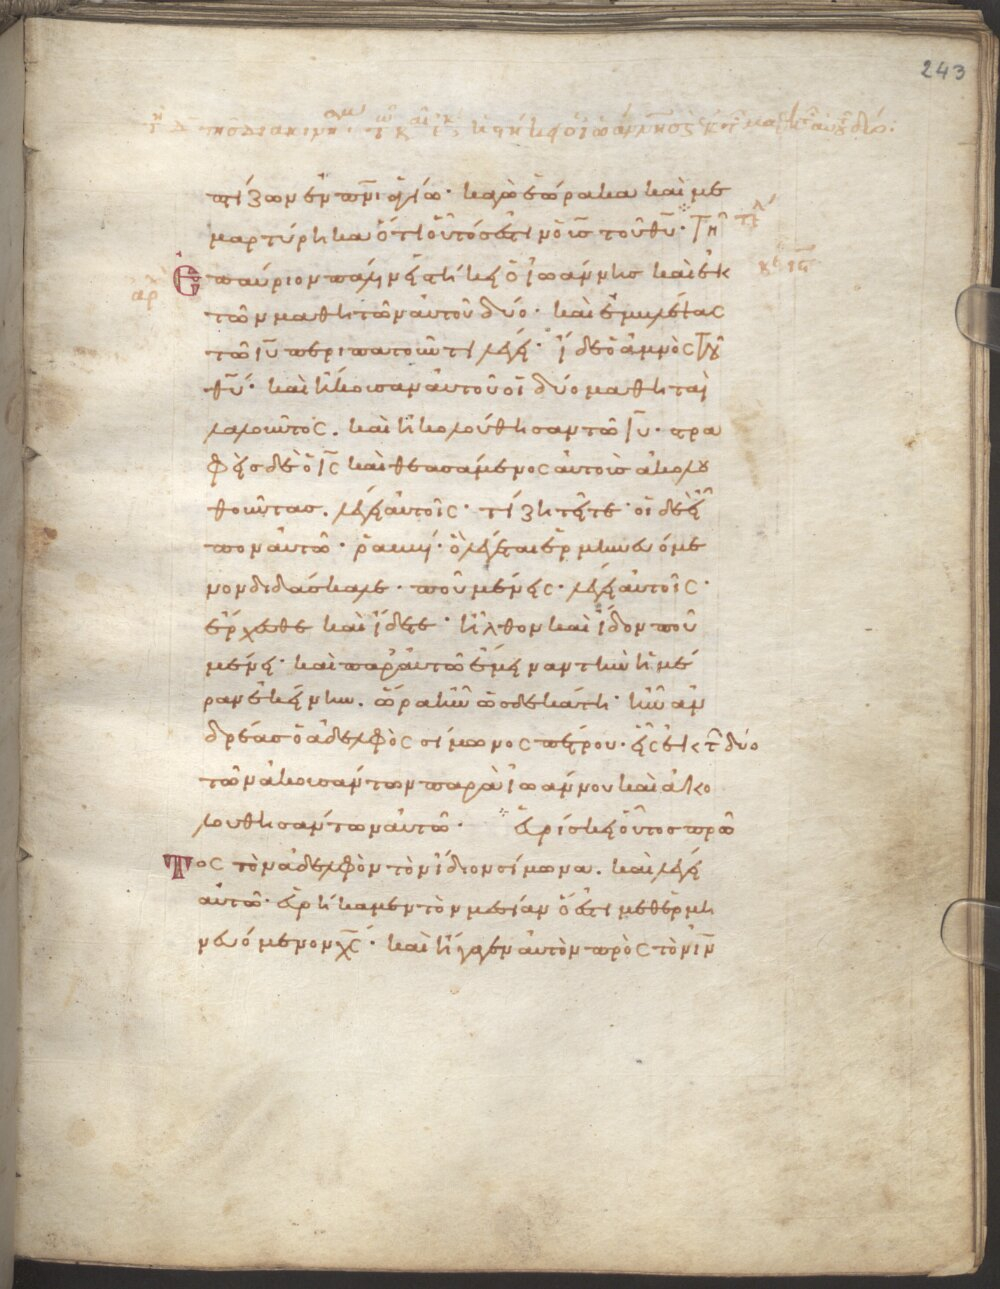 243
πίζων ἐν πνι ἁγίω· καγὼ ἑώρακα καὶ με
μαρτύρηκα ὅτι οὗτός ἐστιν ὁ υἱὸς τοῦ θυ·
Ἐπαύριον πάλιν εἱστήκει ὁ ἰωάννης καὶ ἐκ
τῶν μαθητῶν αὐτοῦ δύο· καὶ ἐμβλέψας
τῶ ιυ περιπατοῦντι λέγει· ἴδε ὁ ἀμνὸς τοῦ
θυ· καὶ ἤκουσαν αὐτοῦ οἱ δύο μαθηταὶ
λαλοῦντος. καὶ ἠκολούθησαν τῶ ιυ· στρα
φεὶς δὲ ὁ ις καὶ θεασάμενος αὐτοὺς ἀκολου
θοῦντας. λέγει αὐτοῖς· τί ζητεῖτε· οἱ δὲ εἶ
πον αὐτῶ· ῥαββί· ὃ λέγεται ἑρμηνευόμε
νον διδάσκαλε· ποῦ μένεις· λέγει αὐτοῖς·
ἔρχεσθε καὶ ἴδετε· ἦλθον καὶ ἶδον ποῦ
μένει· καὶ παρ αὐτῶ ἔμειναν τὴν ἡμέ
ραν ἐκείνην. ὥρα ἦν ὡς δεκάτη· ἦν ἀν
δρέας ὁ ἀδελφὸς σίμωνος πέτρου· εἷς ἐκ τῶν δύο
τῶν ἀκουσάντων παρὰ ἰωάννου καὶ ἀκο
λουθησάντων αὐτῶ· εὑρίσκει οὗτος πρῶ
Τος τὸν ἀδελφὸν τὸν ἴδιον σίμωνα. καὶ λέγει
αὐτῶ· εὑρήκαμεν τὸν μεσίαν ὅ ἐστι μεθερμη
νευόμενον χς· καὶ ἤγαγεν αὐτὸν πρὸς τὸν ιν